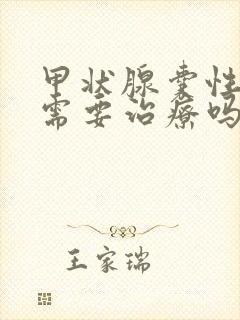 甲状腺囊性
需要治疗吗
王家瑞